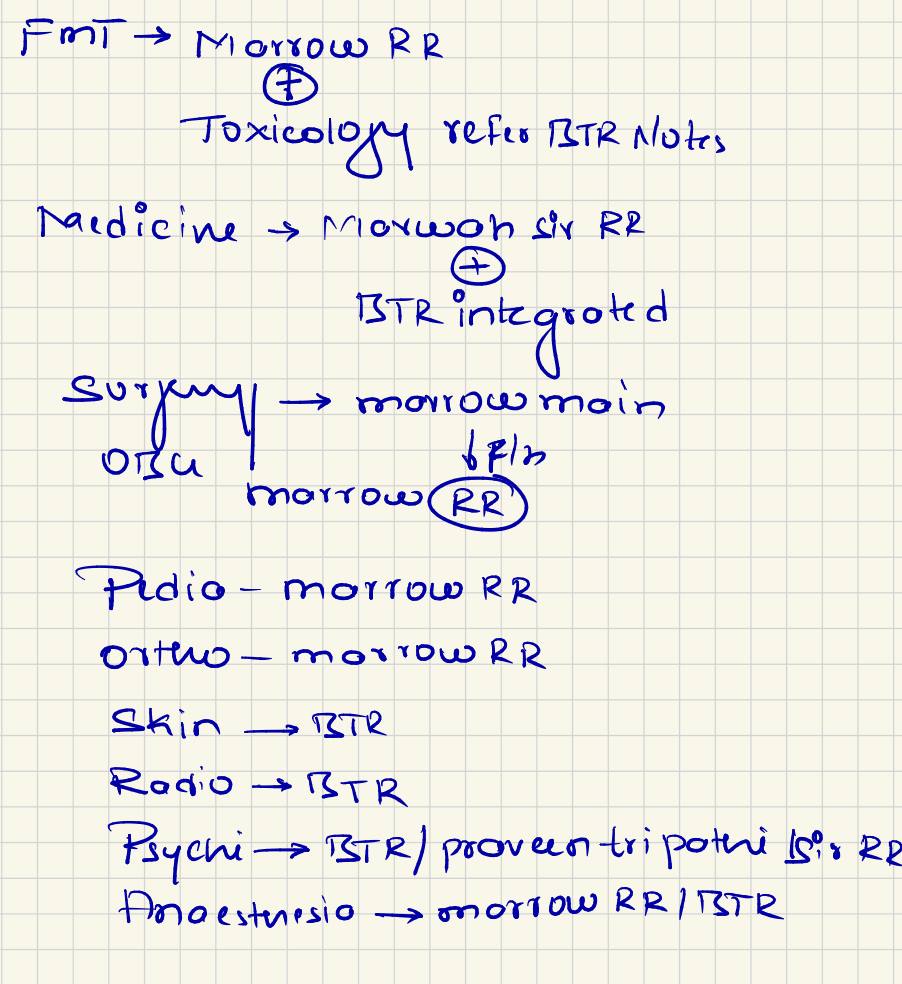 FMT → Marrow RR
+
Toxicology refer BTR Notes
Medicine → Marwah sir RR
+
BTR integrated
Surgery → marrow main
OBG ↓ F/b
marrow RR
Pedia - marrow RR
ortho - marrow RR
Skin → BTR
Radio → BTR
Psychi → BTR / praveen tripathi sir RR
Anaesthesia → marrow RR / BTR